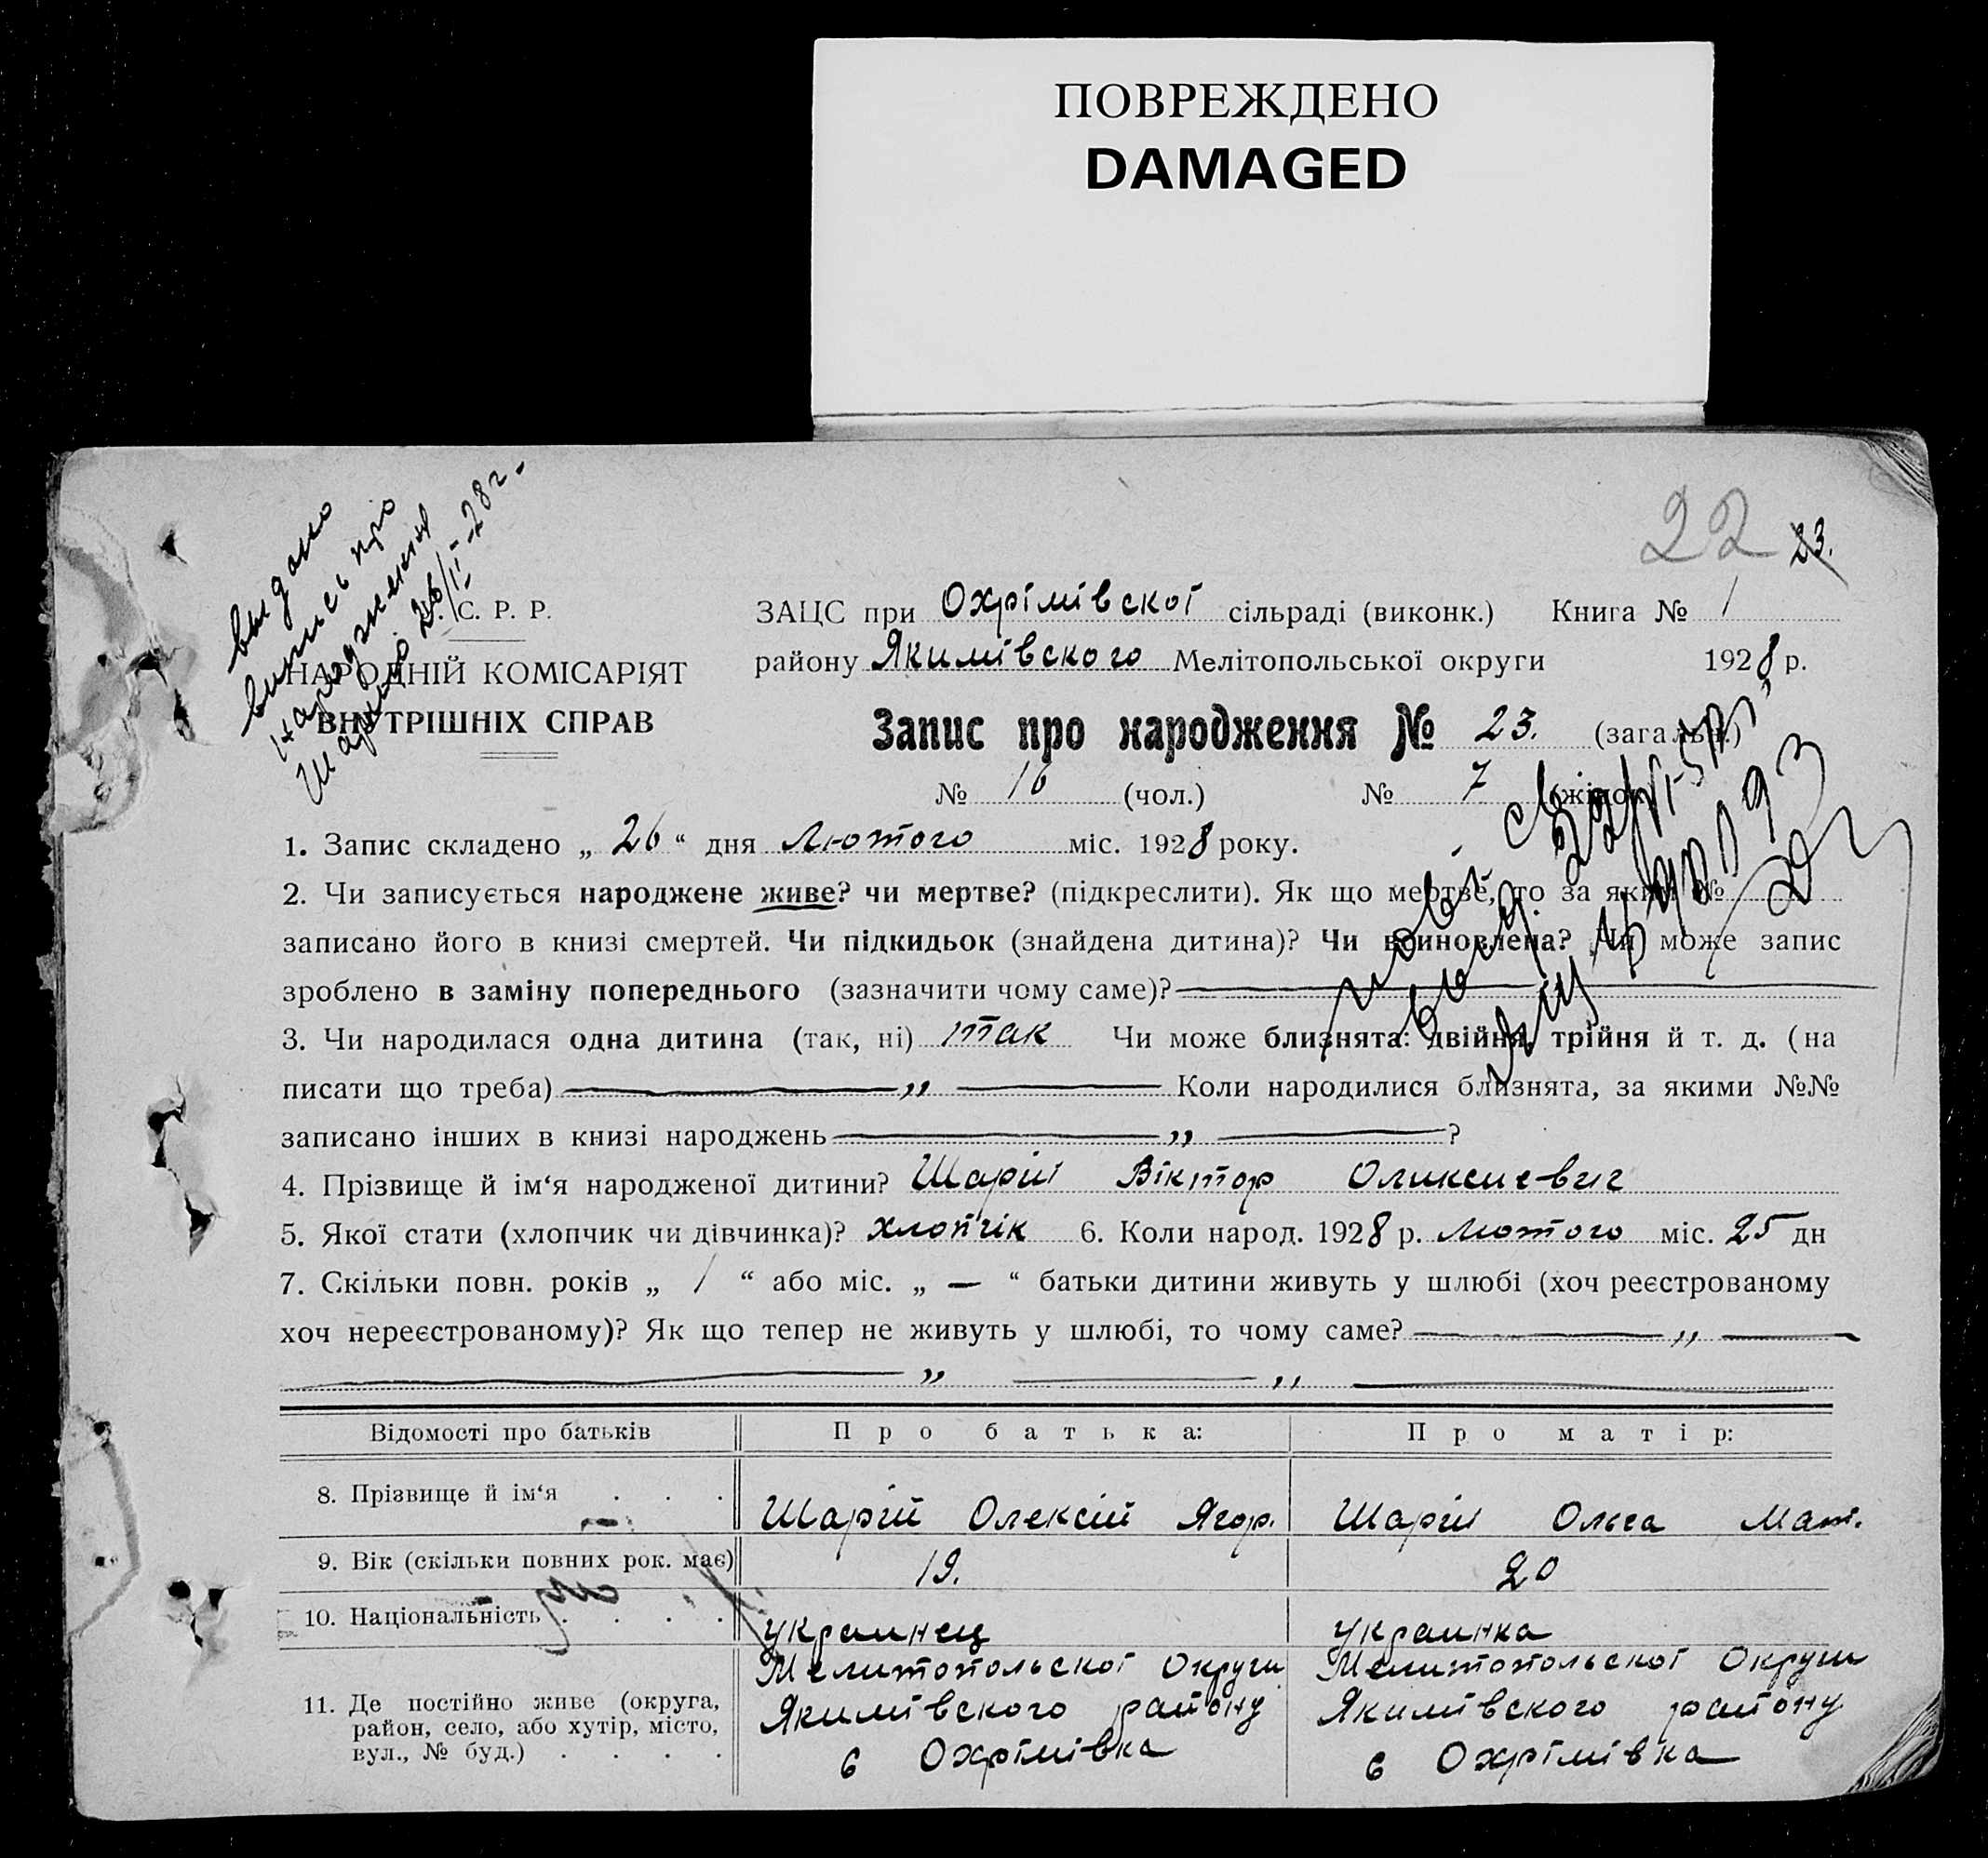 ПОВРЕЖДЕНО
DAMAGED
22 23.
выдано
випись про
народження
Шарию 26/II-28 г.
У. С. Р. Р.
НАРОДНІЙ КОМІСАРІЯТ
ВНУТРІШНІХ СПРАВ
ЗАЦС при Охрімівскоі сільраді (виконк.) Книга № 1
району Якимівского Мелітопольської округи 1928 р.
Запис про народження № 23. (загальн.)
№ 16 (чол.) № 7 (жінок.)
1. Запис складено „ 26 “ дня Лютого міс. 1928 року.
2. Чи записується народжене живе? чи мертве? (підкреслити). Як що мертве, то за яким №
записано його в книзі смертей. Чи підкидьок (знайдена дитина)? Чи всиновлена? Чи може запис
зроблено в заміну попереднього (зазначити чому саме)?
3. Чи народилася одна дитина (так, ні) так Чи може близнята: двійня, трійня й т. д. (на
писати що треба) — „ — Коли народилися близнята, за якими №№
записано інших в книзі народжень — „ — ?
4. Прізвище й ім‘я народженої дитини? Шарій Віктор Оликсиевич
5. Якої стати (хлопчик чи дівчинка)? хлопчік 6. Коли народ. 1928 р. Лютого міс. 25 дн
7. Скільки повн. років „ 1 “ або міс. „ — “ батьки дитини живуть у шлюбі (хоч реєстрованому
хоч нереєстрованому)? Як що тепер не живуть у шлюбі, то чому саме? — „ —
— „ — „ —
Відомості про батьків Про батька: Про матір:
8. Прізвище й ім‘я . . . Шарій Олексій Ягор. Шарій Ольга Мат.
9. Вік (скільки повних рок. має) 19. 20
10. Національність . . . . украинец украинка
11. Де постійно живе (округа, район, село, або хутір, місто, вул., № буд.) . . . . Мелитопольскоі Округи Якимівского району с Охрімівка Мелитопольскоі Округи Якимівского району с Охрімівка